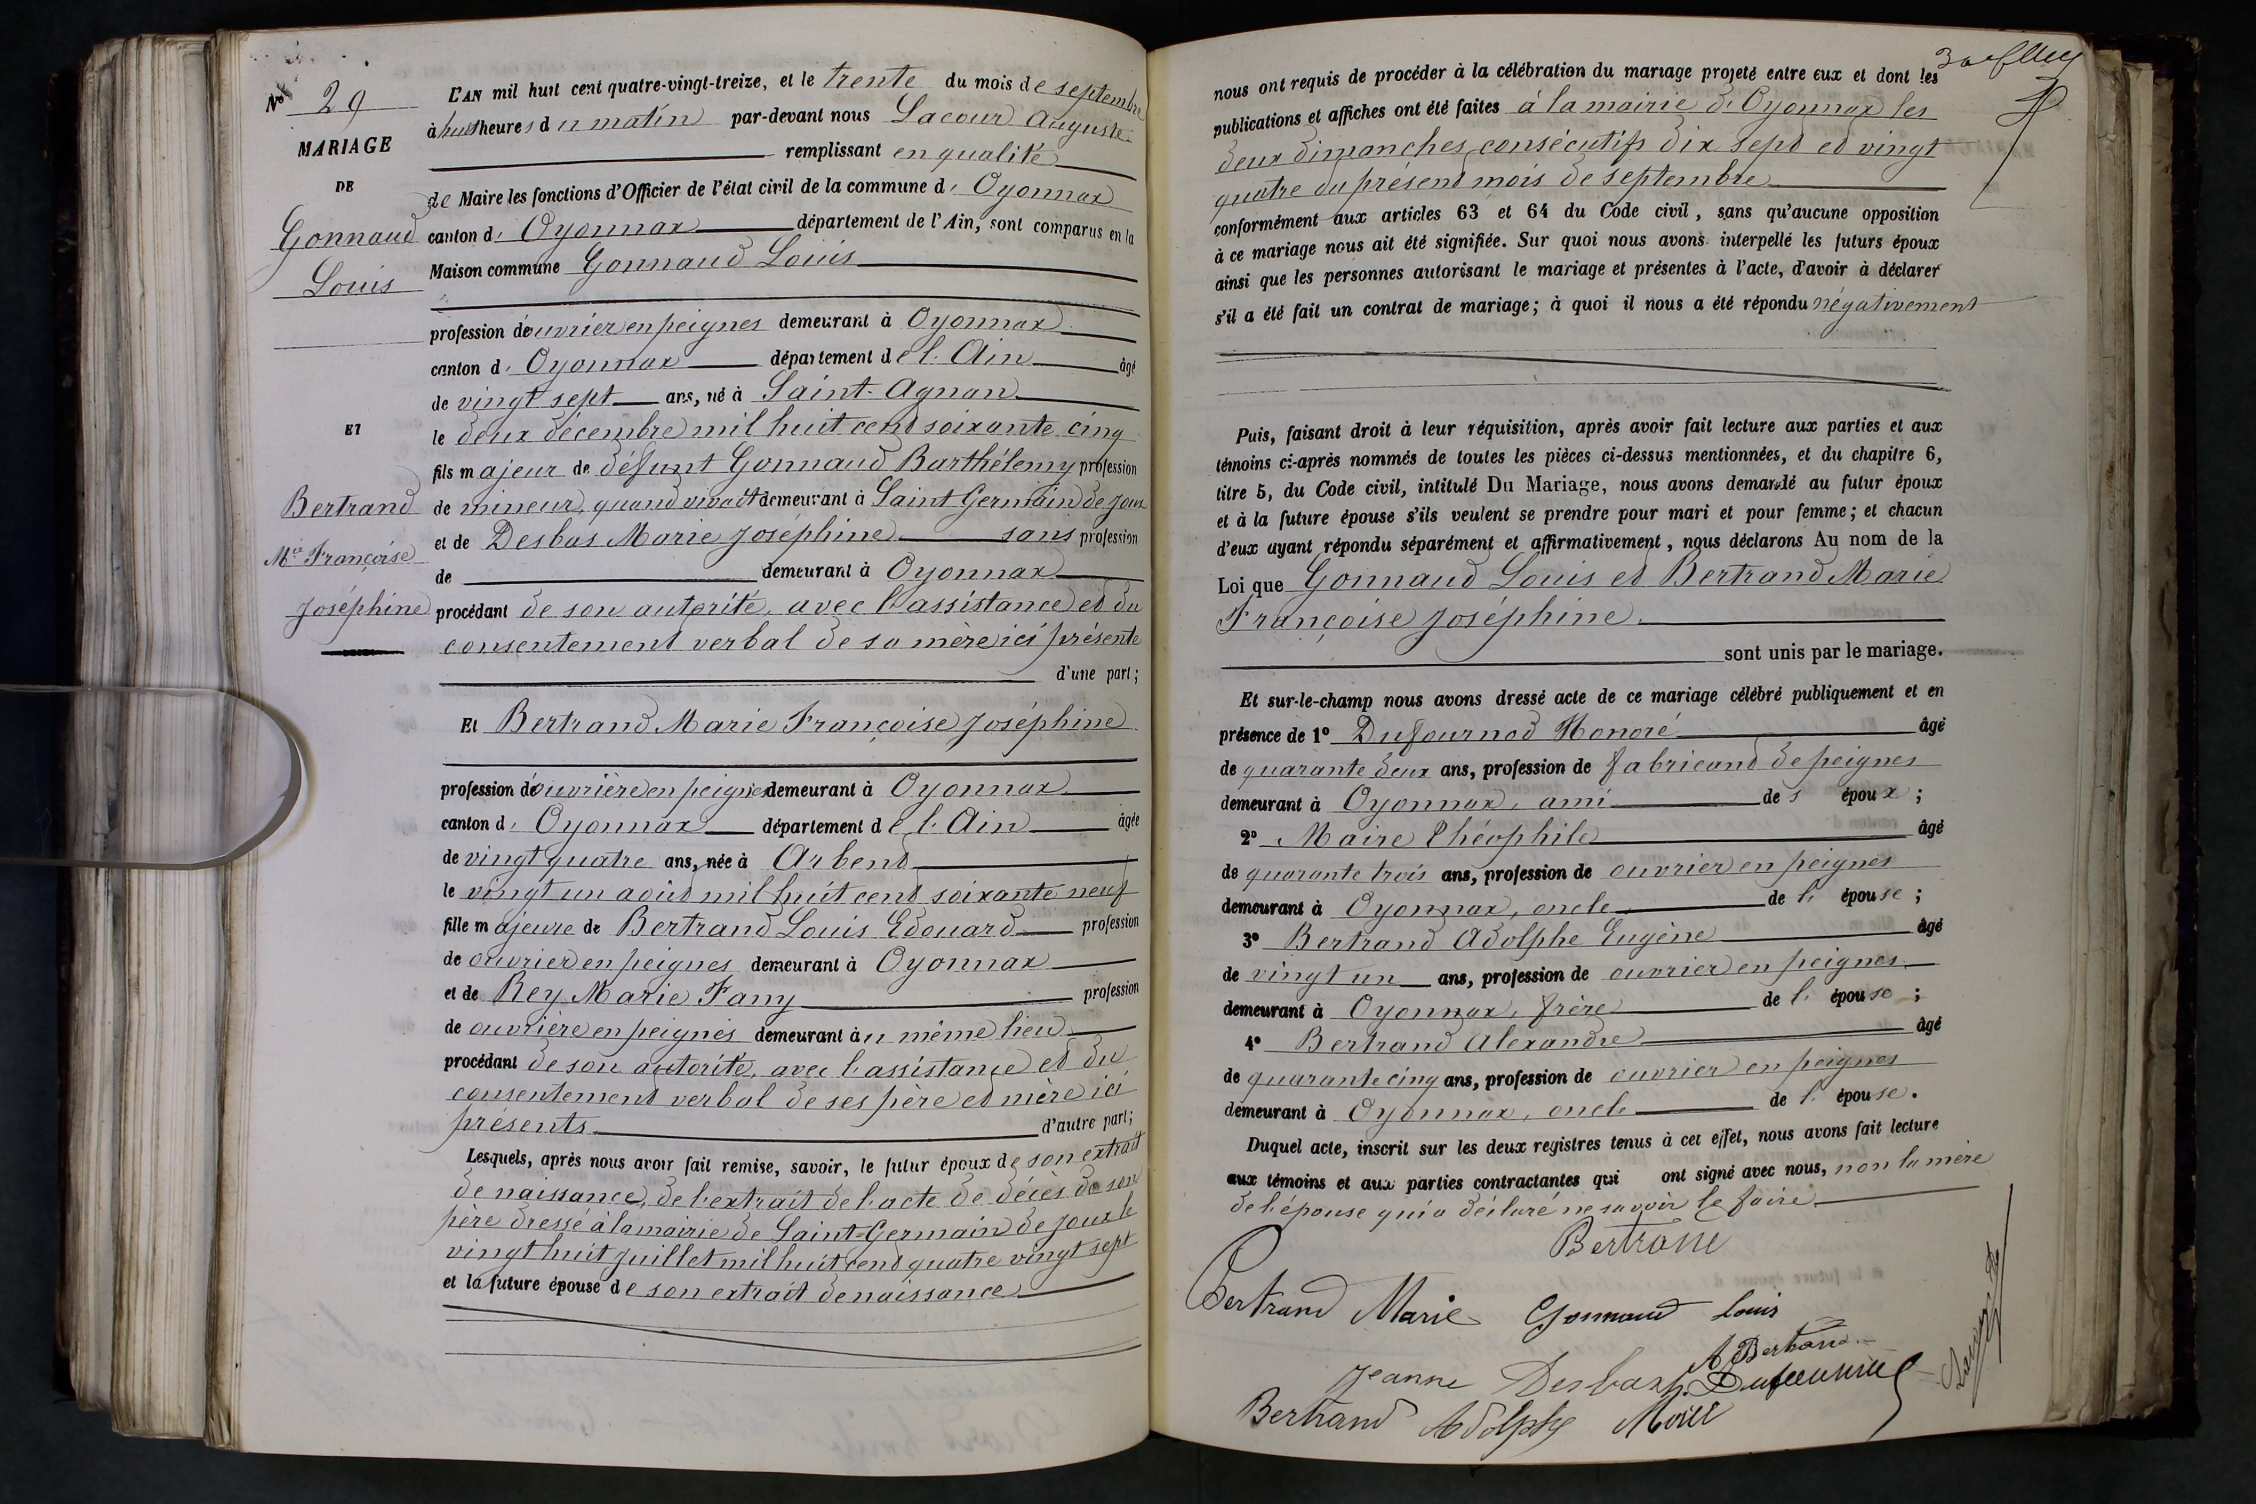 No 29
MARIAGE
DE
Gonnaud
Louis
ET
Bertrand
Mie Françoise
Joséphine
L'AN mil huit cent quatre-vingt-treize, et le trente du mois de septembre
à huit heures du matin par-devant nous Lacour Auguste
remplissant en qualité
de Maire les fonctions d'Officier de l'état civil de la commune d' Oyonnax
canton d' Oyonnax département de l'Ain, sont comparus en la
Maison commune Gonnaud Louis
profession d'ouvrier en peignes demeurant à Oyonnax
canton d' Oyonnax département de l'Ain âgé
de vingt sept ans, né à Saint-Agnan
le deux décembre mil huit cent soixante cinq
fils majeur de défunt Gonnaud Barthélemy profession
de mineur, quand vivait demeurant à Saint Germain de Joux
et de Desbas Marie Joséphine sans profession
de demeurant à Oyonnax
procédant de son autorité, avec l'assistance et du
consentement verbal de sa mère ici présente
d'une part;
Et Bertrand Marie Françoise Joséphine
profession d'ouvrière en peignes demeurant à Oyonnax
canton d' Oyonnax département de l'Ain âgée
de vingt quatre ans, née à Arbent
le vingt un août mil huit cent soixante neuf
fille majeure de Bertrand Louis Edouard profession
de ouvrier en peignes demeurant à Oyonnax
et de Rey Marie Fany profession
de ouvrière en peignes demeurant au même lieu
procédant de son autorité, avec l'assistance et du
consentement verbal de ses père et mère ici
présents d'autre part;
Lesquels, après nous avoir fait remise, savoir, le futur époux de son extrait
de naissance, de l'extrait de l'acte de décès de son
père dressé à la mairie de Saint-Germain de Joux le
vingt huit juillet mil huit cent quatre vingt sept
et la future épouse de son extrait de naissance
nous ont requis de procéder à la célébration du mariage projeté entre eux et dont les
publications et affiches ont été faites à la mairie d'Oyonnax les
deux dimanches consécutifs dix sept et vingt
quatre du présent mois de septembre
conformément aux articles 63 et 64 du Code civil, sans qu'aucune opposition
à ce mariage nous ait été signifiée. Sur quoi nous avons interpellé les futurs époux
ainsi que les personnes autorisant le mariage et présentes à l'acte, d'avoir à déclarer
s'il a été fait un contrat de mariage; à quoi il nous a été répondu négativement
Puis, faisant droit à leur réquisition, après avoir fait lecture aux parties et aux
témoins ci-après nommés de toutes les pièces ci-dessus mentionnées, et du chapitre 6,
titre 5, du Code civil, intitulé Du Mariage, nous avons demandé au futur époux
et à la future épouse s'ils veulent se prendre pour mari et pour femme; et chacun
d'eux ayant répondu séparément et affirmativement, nous déclarons Au nom de la
Loi que Gonnaud Louis et Bertrand Marie
Françoise Joséphine
sont unis par le mariage.
Et sur-le-champ nous avons dressé acte de ce mariage célébré publiquement et en
présence de 1° Dufournod Honoré âgé
de quarante deux ans, profession de fabricant de peignes
demeurant à Oyonnax, ami des époux;
2° Maire Théophile âgé
de quarante trois ans, profession de ouvrier en peignes
demeurant à Oyonnax, oncle de l'épouse;
3° Bertrand Adolphe Eugène âgé
de vingt un ans, profession de ouvrier en peignes
demeurant à Oyonnax, frère de l'épouse;
4° Bertrand Alexandre âgé
de quarante cinq ans, profession de ouvrier en peignes
demeurant à Oyonnax, oncle de l'épouse.
Duquel acte, inscrit sur les deux registres tenus à cet effet, nous avons fait lecture
aux témoins et aux parties contractantes qui ont signé avec nous, non la mère
de l'épouse qui a déclaré ne savoir le faire
Bertrand
Bertrand Marie Gonnaud Louis
A Bertrand
Jeanne Desbas h. Dufournod
Bertrand Adolphe Maire